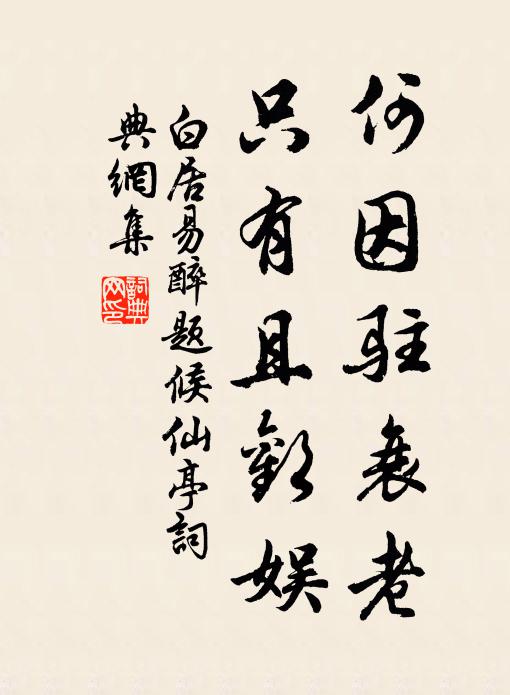 何因駐衰老
只有且歡娱
白居易醉題候仙亭詞
典網集
詞典
网印